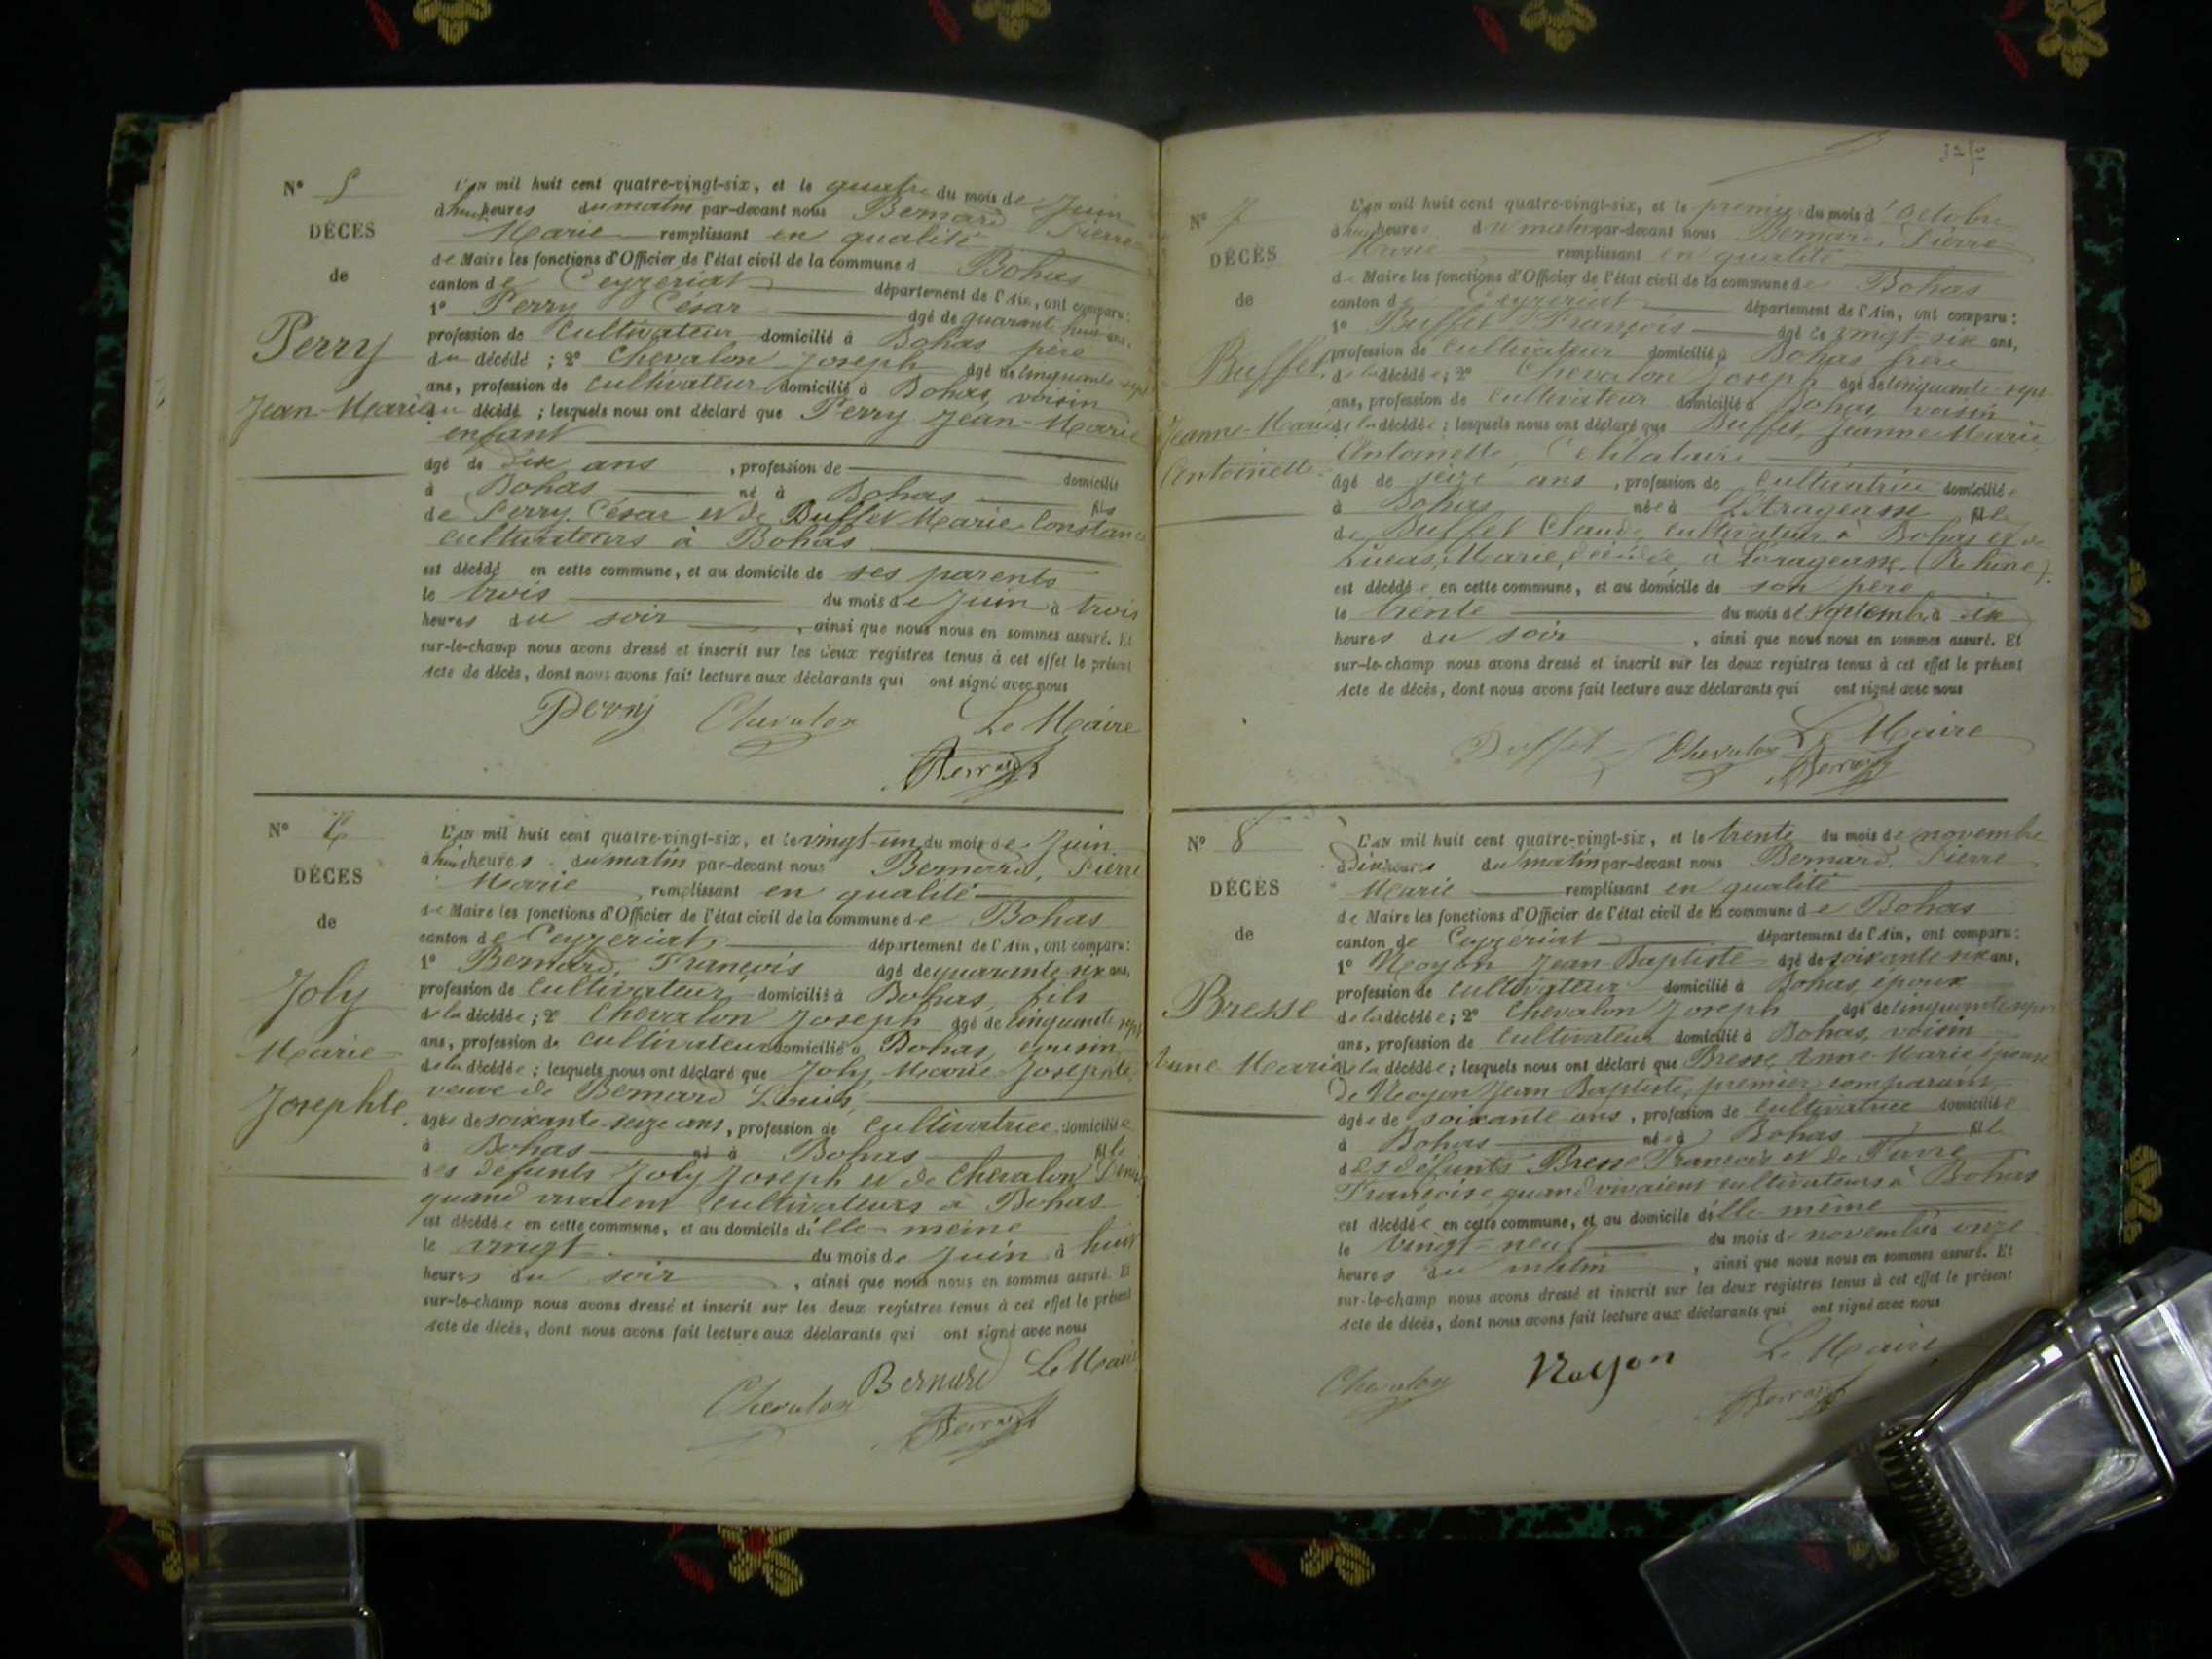 N° 5
DÉCES
de
Perry
Jean-Marie
L'an mil huit cent quatre-vingt-six, et le quatre du mois de Juin
à huit heures du matin par-devant nous Bernard Pierre
Marie remplissant en qualité
de Maire les fonctions d'Officier de l'état civil de la commune d Bohas
canton de Ceyzeriat département de l'Ain, ont comparu:
1° Perry César âgé de quarante huit ans,
profession de cultivateur domicilié à Bohas père
du décédé ; 2° Chevalon Joseph âgé de cinquante-sept
ans, profession de cultivateur domicilié à Bohas, voisin
du décédé ; lesquels nous ont déclaré que Perry Jean-Marie
enfant
âgé de dix ans , profession de domicilié
à Bohas né à Bohas fils
de Perry César et de Buffet Marie Constance
cultivateurs à Bohas
est décédé en cette commune, et au domicile de ses parents
le trois du mois de Juin à trois
heures du soir , ainsi que nous nous en sommes assuré. Et
sur-le-champ nous avons dressé et inscrit sur les deux registres tenus à cet effet le présent
Acte de décès, dont nous avons fait lecture aux déclarants qui ont signé avec nous
Perry Chevalon Le Maire
Bernard
N° 6
DÉCES
de
Joly
Marie
Josephte
L'an mil huit cent quatre-vingt-six, et le vingt-un du mois de Juin
à huit heures du matin par-devant nous Bernard, Pierre
Marie remplissant en qualité
de Maire les fonctions d'Officier de l'état civil de la commune de Bohas
canton de Ceyzeriat, département de l'Ain, ont comparu:
1° Bernard, François âgé de quarante six ans,
profession de cultivateur domicilié à Bohas, fils
de la décédée ; 2° Chevalon Joseph âgé de cinquante sept
ans, profession de cultivateur domicilié à Bohas, cousin
de la décédée ; lesquels nous ont déclaré que Joly, Marie Josephte,
veuve de Bernard Louis,
âgée de soixante-seize ans, profession de cultivatrice domiciliée
à Bohas né à Bohas fille
des défunts Joly Joseph et de Chevalon
quand vivaient cultivateurs à Bohas
est décédée en cette commune, et au domicile d'elle-même
le vingt du mois de Juin à huit
heures du soir , ainsi que nous nous en sommes assuré. Et
sur-le-champ nous avons dressé et inscrit sur les deux registres tenus à cet effet le présent
Acte de décès, dont nous avons fait lecture aux déclarants qui ont signé avec nous
Chevalon Bernard Le Maire
Bernard
N° 7
DÉCÈS
de
Buffet
Jeanne-Marie
Antoinette
L'an mil huit cent quatre-vingt-six, et le premier du mois d'octobre
à heures du matin par-devant nous Bernard, Pierre
Marie remplissant en qualité
de Maire les fonctions d'Officier de l'état civil de la commune de Bohas
canton de Ceyzeriat département de l'Ain, ont comparu:
1° Buffet François âgé de vingt-six ans,
profession de cultivateur domicilié à Bohas frère
de la décédée ; 2° Chevalon Joseph âgé de cinquante-sept
ans, profession de cultivateur domicilié à Bohas voisin
de la décédée ; lesquels nous ont déclaré que Buffet, Jeanne Marie
Antoinette, Célibataire
âgé de seize ans , profession de cultivatrice domiciliée
à Bohas née à fille
de Buffet Claude cultivateur à Bohas et de
Lucas, Marie, décédée, à
est décédée en cette commune, et au domicile de son père
le trente du mois de septembre à dix
heures du soir , ainsi que nous nous en sommes assuré. Et
sur-le-champ nous avons dressé et inscrit sur les deux registres tenus à cet effet le présent
Acte de décès, dont nous avons fait lecture aux déclarants qui ont signé avec nous
Buffet Chevalon Le Maire
Bernard
N° 8
DÉCÈS
de
Bresse
Anne Marie
L'an mil huit cent quatre-vingt-six, et le trente du mois de novembre
à dix heures du matin par-devant nous Bernard, Pierre
Marie remplissant en qualité
de Maire les fonctions d'Officier de l'état civil de la commune de Bohas
canton de Ceyzériat département de l'Ain, ont comparu:
1° Noyon Jean Baptiste âgé de soixante six ans,
profession de cultivateur domicilié à Bohas, époux
de la décédée ; 2° Chevalon Joseph âgé de cinquante sept
ans, profession de cultivateur domicilié à Bohas, voisin
de la décédée ; lesquels nous ont déclaré que Bresse, Anne-Marie épouse
de Noyon Jean Baptiste, premier comparant
âgée de soixante ans, profession de cultivatrice domiciliée
à Bohas née à Bohas fille
des défunts Bresse François et de Favre
Françoise quand vivaient cultivateurs à Bohas
est décédée en cette commune, et au domicile d'elle même
le vingt-neuf du mois de novembre à onze
heures du matin , ainsi que nous nous en sommes assuré. Et
sur-le-champ nous avons dressé et inscrit sur les deux registres tenus à cet effet le présent
Acte de décès, dont nous avons fait lecture aux déclarants qui ont signé avec nous
Chevalon Noyon Le Maire
Bernard